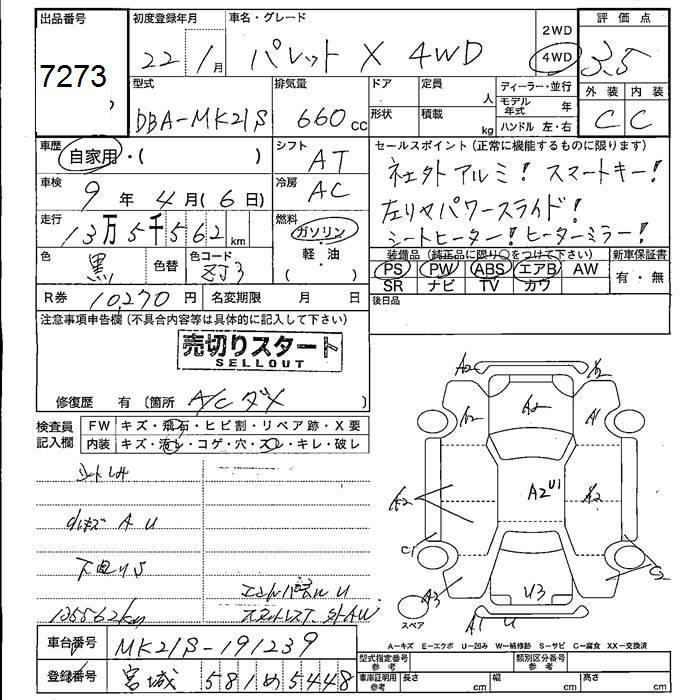 出品番号 初度登録年月 車名・グレード 評価点
7273 22/1月 パレット X 4WD 2WD 4WD 3.5
型式 排気量 ドア 定員 人 ディーラー・並行 外装 内装
DBA-MK21S 660cc 形状 積載 kg モデル年式 年 ハンドル 左・右 C C
車歴 自家用・( ) シフト AT セールスポイント(正常に機能するものに限ります)
車検 9年4月(6日) 冷房 AC 社外アルミ! スマートキー!
走行 13万5千562km 燃料 ガソリン 軽・油 ( ) 左リヤパワースライド!
シートヒーター! ヒーターミラー!
色 黒 色替 色コード ZJ3 装備品(純正品に限り○をつけて下さい) 新車保証書
PS PW ABS エアB AW 有・無
SR ナビ TV カワ
R券 10,270円 名変期限 月 日 後日品
注意事項申告欄(不具合内容等は具体的に記入して下さい)
売切りスタート
SELLOUT
修復歴 有 (箇所 A/Cダメ )
検査員記入欄 FW キズ・飛石・ヒビ割・リペア跡・X要
内装 キズ・汚レ・コゲ・穴・スレ・キレ・破レ
内キズ A U
下廻りS
135562km
A2 A2 A2 A1 A2 A2U1 A2 C1 C2 A3 U3 A1 U
スペア
A=キズ E=エクボ U=凹み W=補修跡 S=サビ C=腐食 XX=交換済
車台番号 MK21S-191239 型式指定番号 参考 類別区分番号 参考
登録番号 宮城 581 め 5448 車庫証明用 参考 長さ cm 幅 cm 高さ cm